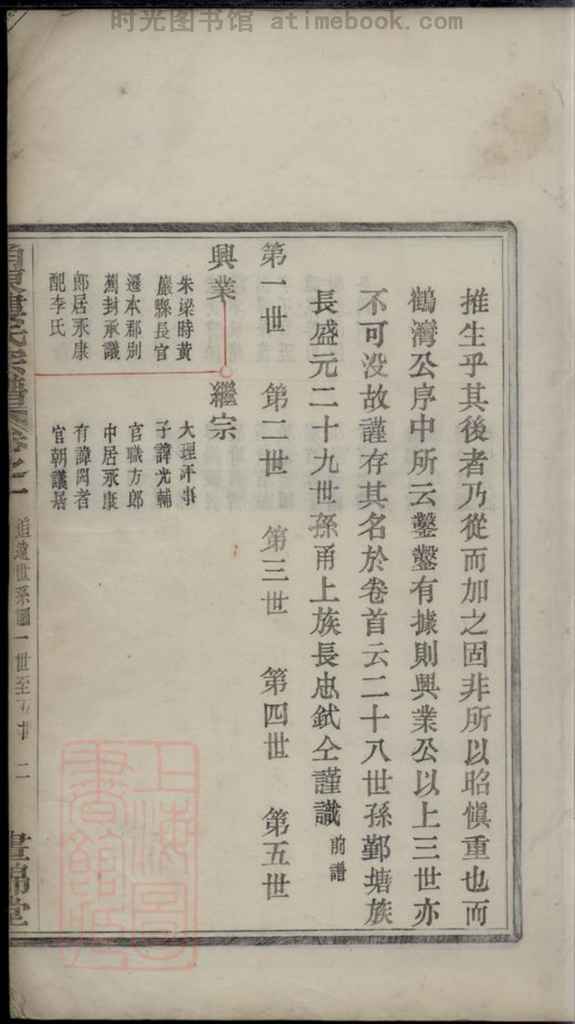 时光图书馆 atimebook.com
推生乎其後者乃從而加之固非所以昭慎重也而
鶴灣公序中所云鑿鑿有據則興業公以上三世亦
不可没故謹存其名於卷首云二十八世孫鄞塘族
長盛元二十九世孫甬上族長忠鉽仝謹識 前譜
第一世 第二世 第三世 第四世 第五世
興業 繼宗
朱梁時黄
巖縣長官
遷本郡别
封承議
郎居永康
配李氏
大理评事
子諱光輔
官職方郎
中居永康
有諱閎者
官朝議
氏宗譜卷之一 世系圖一世至五世 二 晝錦堂
上海图書館藏